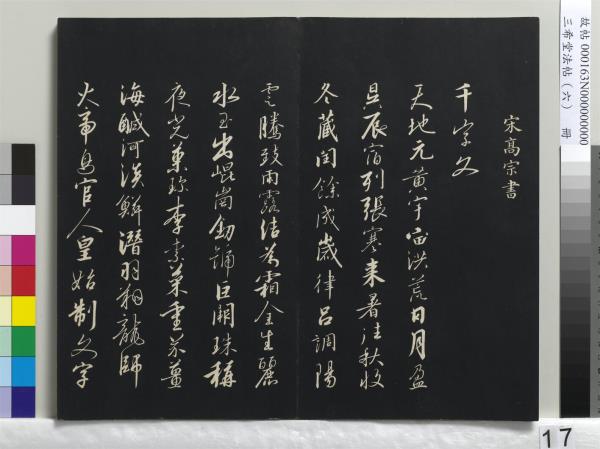 宋高宗書
千字文
天地元黃宇宙洪荒日月盈
昃辰宿列張寒来暑往秋收
冬藏閏餘成歲律呂調陽
雲騰致雨露結為霜金生麗
水玉出崐崗劍號巨闕珠稱
夜光菓珍李柰菜重芥薑
海鹹河淡鱗潛羽翔龍師
火帝鳥官人皇始制文字
故帖 000163N000000000
三希堂法帖（六） 冊
17